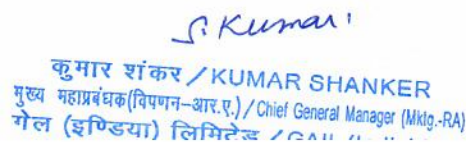 S. Kumar
कुमार शंकर / KUMAR SHANKER
मुख्य महाप्रबंधक(विपणन-आर.ए.) / Chief General Manager (Mktg.-RA)
गेल (इण्डिया) लिमिटेड / GAIL (India)